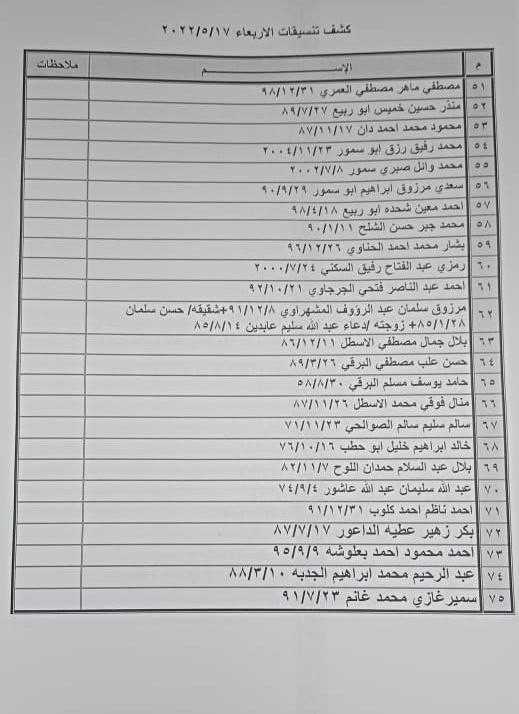 كشف تنسيقات الاربعاء ٢٠٢٢/٥/١٧
م الاســـــــم ملاحظات
٥١ مصطفي ماهر مصطفي العمري ٩٨/١٢/٣١
٥٢ منذر حسين خميس ابو ربيع ٨٩/٧/٢٧
٥٣ محمود محمد احمد دان ٨٧/١١/١٧
٥٤ محمد رفيق رزق ابو سمور ٢٠٠٤/١١/٢٣
٥٥ محمد وائل صبري سمور ٢٠٠٢/٧/٨
٥٦ سعدي مرزوق ابراهيم ابو سمور ٩٠/٩/٢٩
٥٧ احمد معين شحده ابو ربيع ٩٨/٤/١٨
٥٨ محمد جبر حسن الشلح ٩٠/١/١١
٥٩ بشار محمد احمد الحناوي ٩٦/١٢/٢٦
٦٠ رمزي عبد الفتاح رفيق السكني ٢٠٠٠/٧/٢٤
٦١ احمد عبد الناصر فتحي الجرجاوي ٩٢/١٠/٢١
٦٢ مرزوق سلمان عبد الرؤوف المشهراوي ٩١/١٢/٨+شقيقه/ حسن سلمان
٨٥/١/٢٨+ زوجته /دعاء عبد الله سليم عابدين ٨٥/٨/١٤
٦٣ بلال جمال مصطفي الاسطل ٨٦/١٢/١١
٦٤ حسن علب مصطفي البرقي ٨٩/٣/٢٦
٦٥ حامد يوسف مسلم البرقي ٥٨/٨/٣٠
٦٦ منال فوقي محمد الاسطل ٨٧/١١/٢٦
٦٧ سالم سليم سالم الصوالحي ٧١/١١/٢٣
٦٨ خالد ابراهيم خليل ابو حطب ٧٦/١٠/١٦
٦٩ بلال عبد السلام حمدان اللوح ٨٢/١١/٧
٧٠ عبد الله سليمان عبد الله عاشور ٧٤/٩/٤
٧١ احمد ناظم احمد كلوب ٩١/١٢/٣١
٧٢ بكر زهير عطيه الداعور ٨٧/٧/١٧
٧٣ احمد محمود احمد بعلوشه ٩٥/٩/٩
٧٤ عبد الرحيم محمد ابراهيم الجدبه ٨٨/٣/١٠
٧٥ سمير غازي محمد غانم ٩١/٧/٢٣